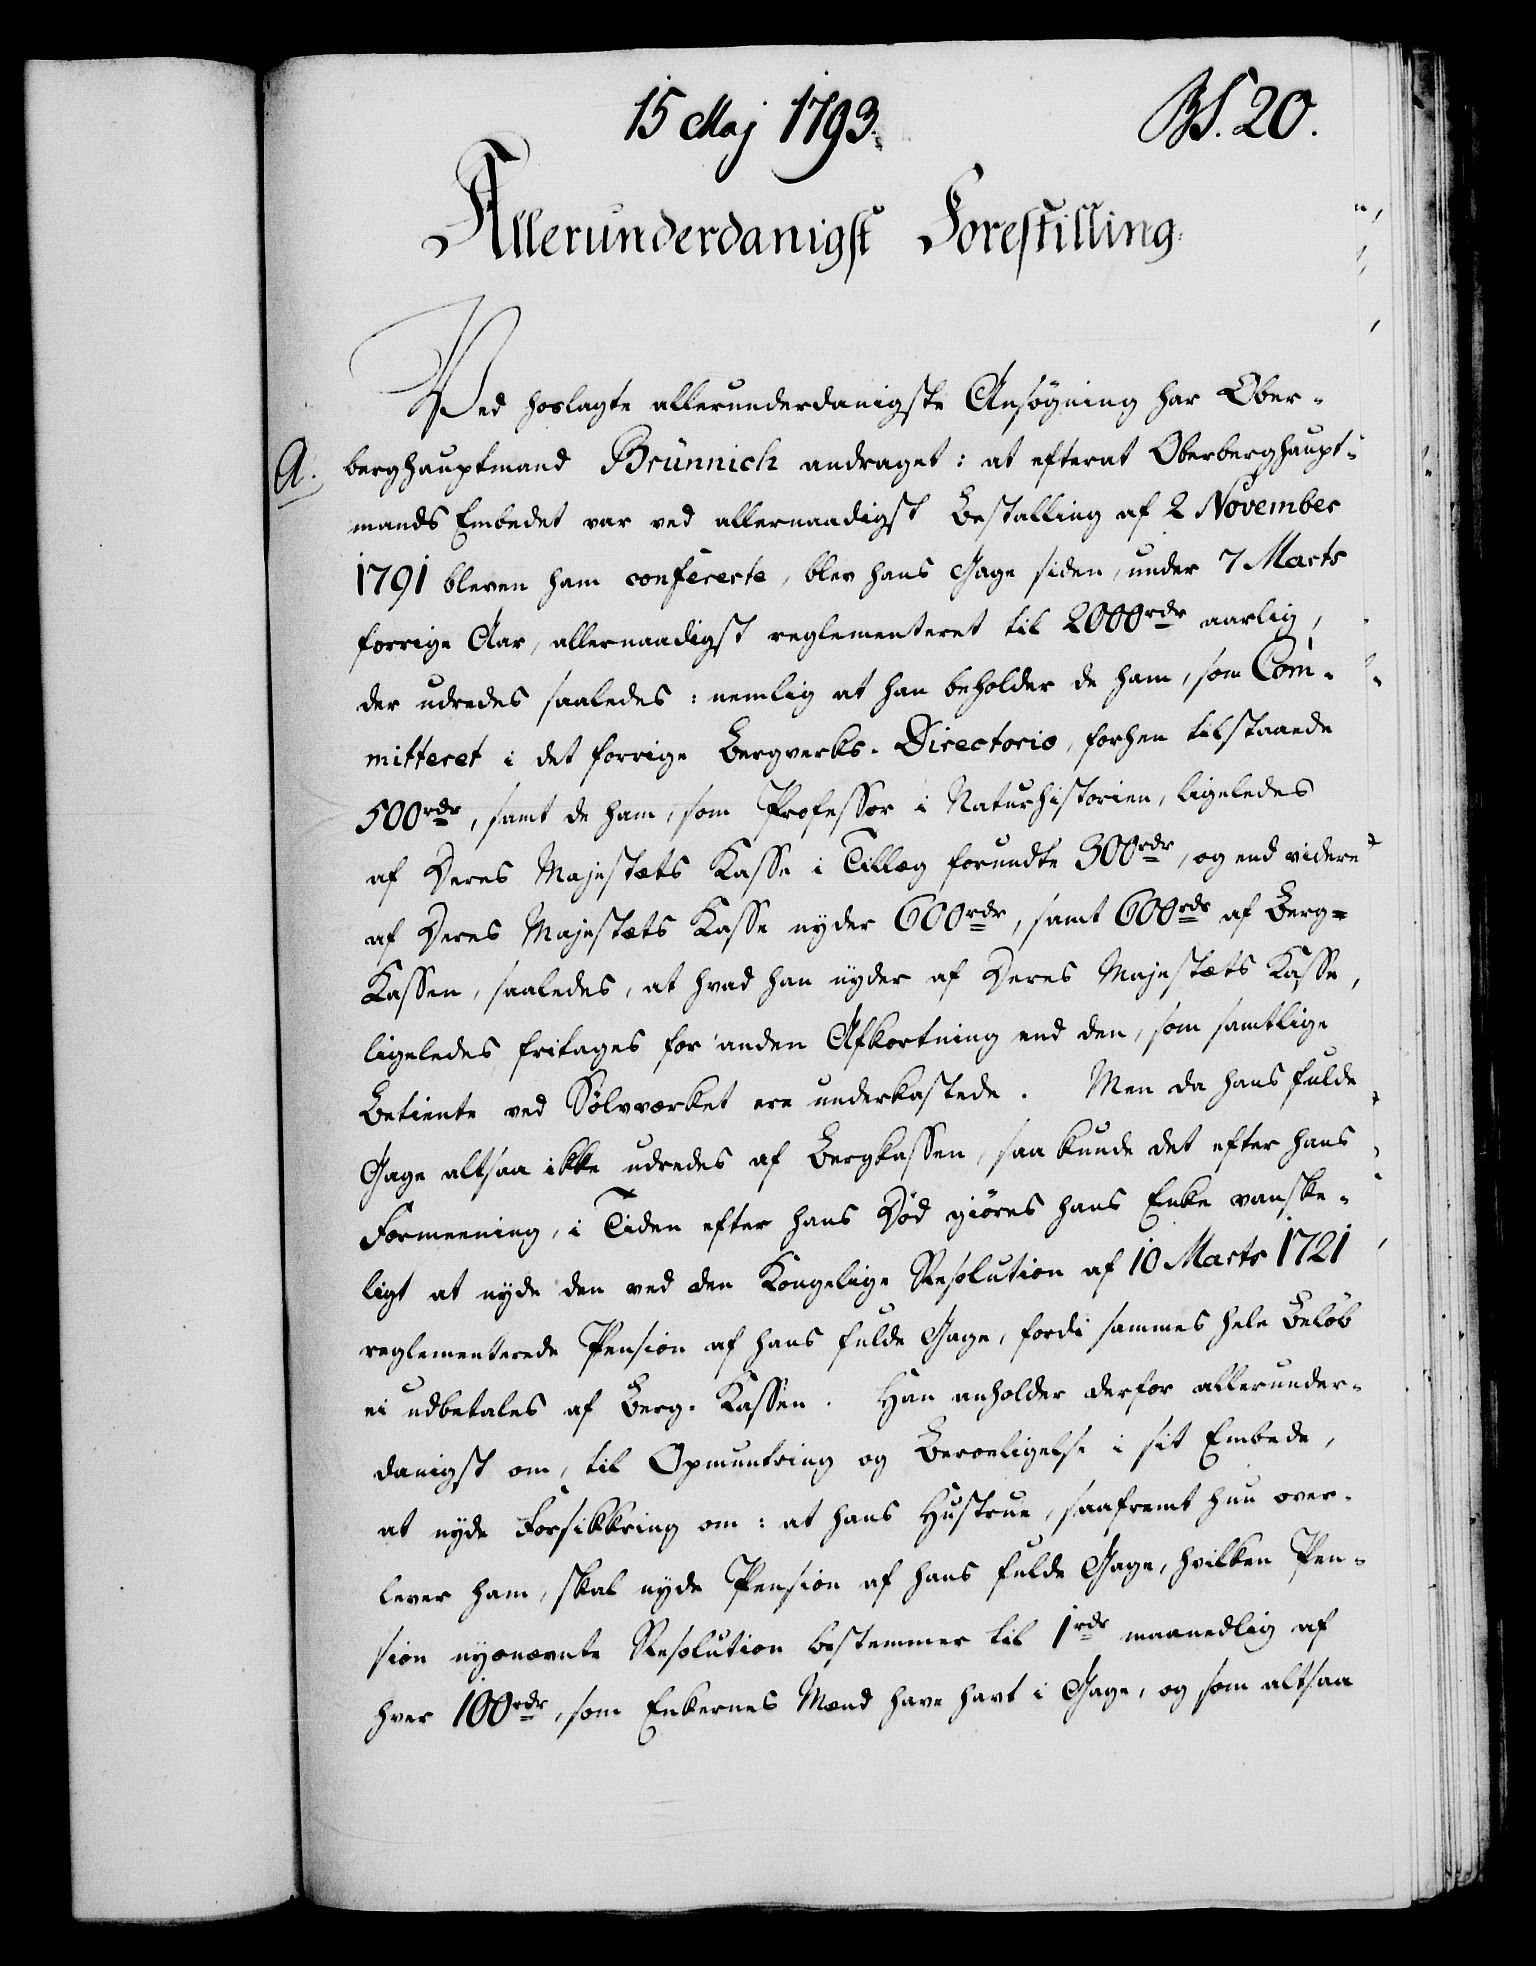 15 Maj 1793.
BS. 20.
Allerunderdanigst Forestilling.
Ved hoslagte allerunderdanigste Ansögning har Ober-
A.
berghauptmand Brünnich andraget: at efterat Oberberghaupt-
mands Embedet var ved allernaadigst Bestalling af 2 November
1791 bleven ham confererte, blev hans Gage siden, under 7 Marts
forrige Aar, allernaadigst reglementeret til 2000 rdr aarlig,
der udredes saaledes: nemlig at han beholder de ham, som Com-
mitteret i det forrige Bergverks-Directorio, forhen tilstaaede
500 rdr, samt de ham, som Professor i Naturhistorien, ligeledes
af Deres Majestæts Kasse i Tillæg forundte 300 rdr, og end videre
af Deres Majestæts Kasse nyder 600 rdr, samt 600 rdr af Berg-
Kassen, saaledes, at hvad han nyder af Deres Majestæts Kasse,
ligeledes fritages for anden Afkortning end den, som samtlige
Betiente ved Sölvværket ere underkastede. Men da hans fulde
Gage altsaa ikke udredes af Bergkassen, saa kunde det efter hans
Formeening, i Tiden efter hans Död giöres hans Enke vanske-
ligt at nyde den ved den Kongelige Resolution af 10 Marts 1721
reglementerede Pension af hans fulde Gage, fordi sammes hele Belöb
ei udbetales af Berg-Kassen. Han anholder derfor allerunder-
danigst om, til Opmuntring og Beroeligelse i sit Embede,
at nyde Forsikkring om: at hans Hustrue, saafremt hun over-
lever ham, skal nyde Pension af hans fulde Gage, hvilken Pen-
sion nysnævnte Resolution bestemmer til 1 rdr maanedlig af
hver 100 rdr, som Enkernes Mænd have havt i Gage, og som altsaa